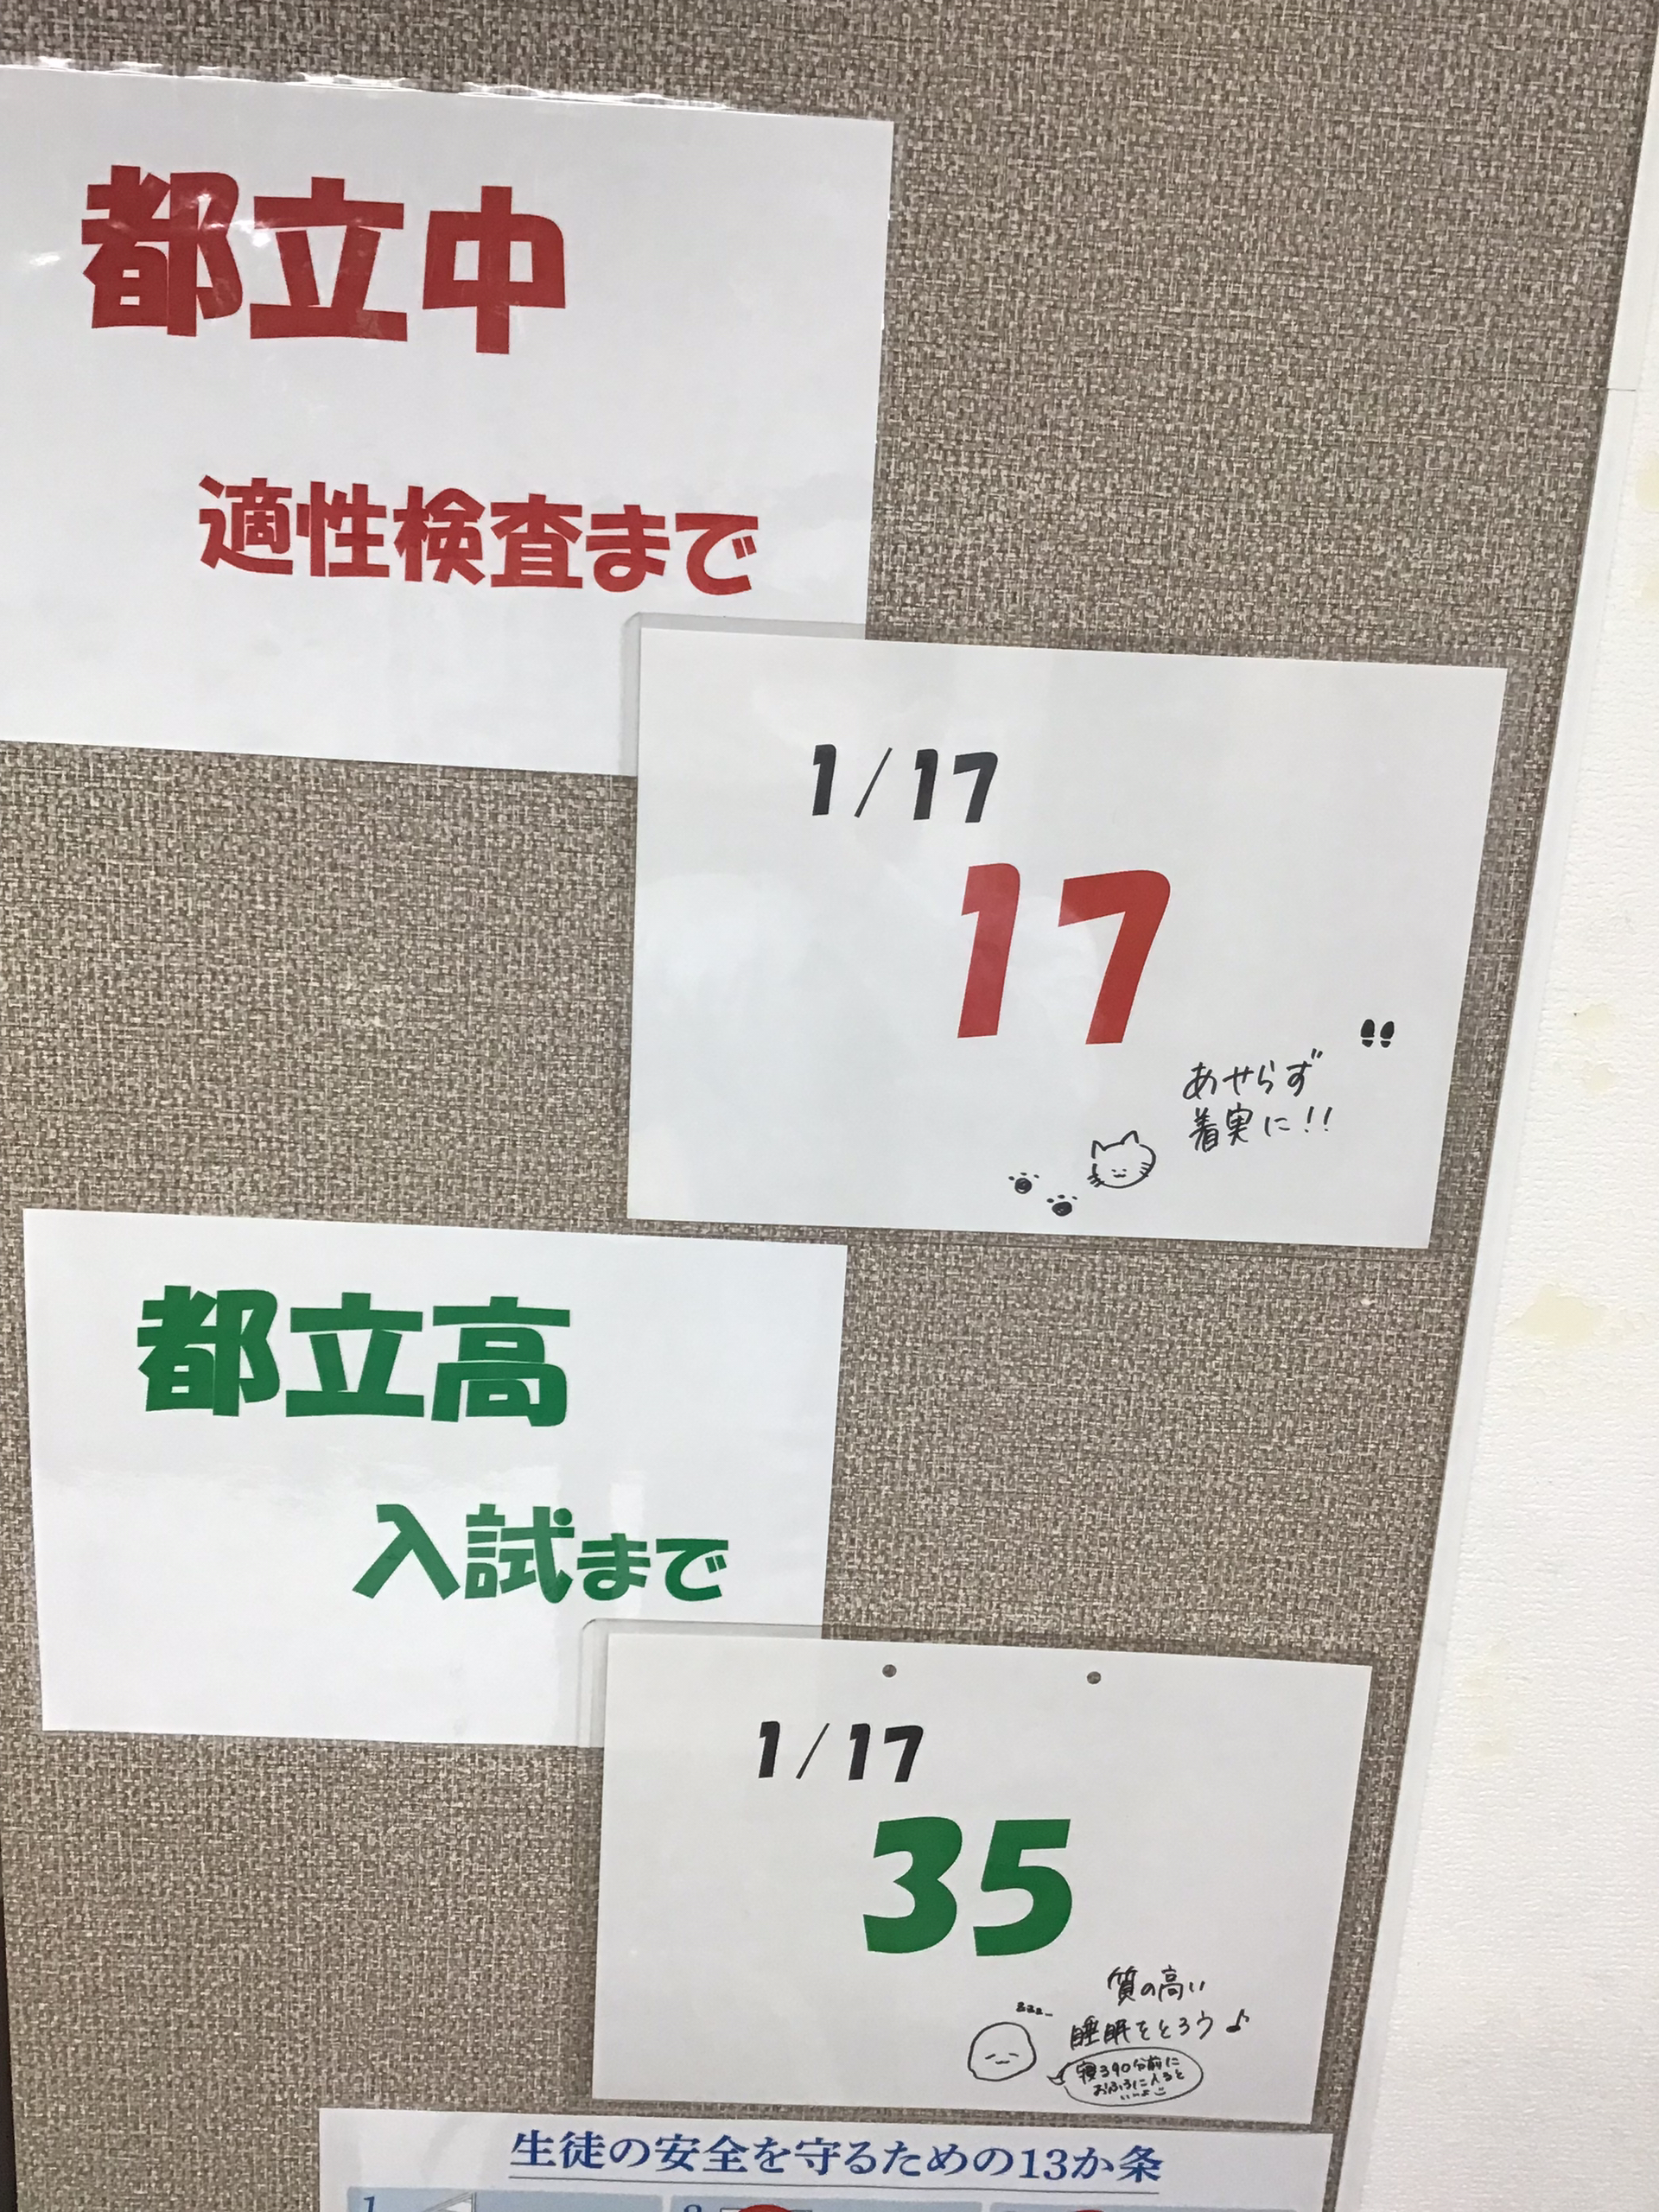 都立中
適性検査まで
1/17
17
あせらず
着実に!!
都立高
入試まで
1/17
35
質の高い
睡眠をとろう♪
zzz
寝る90分前に
おふろに入ると
いいよ
生徒の安全を守るための13か条
1